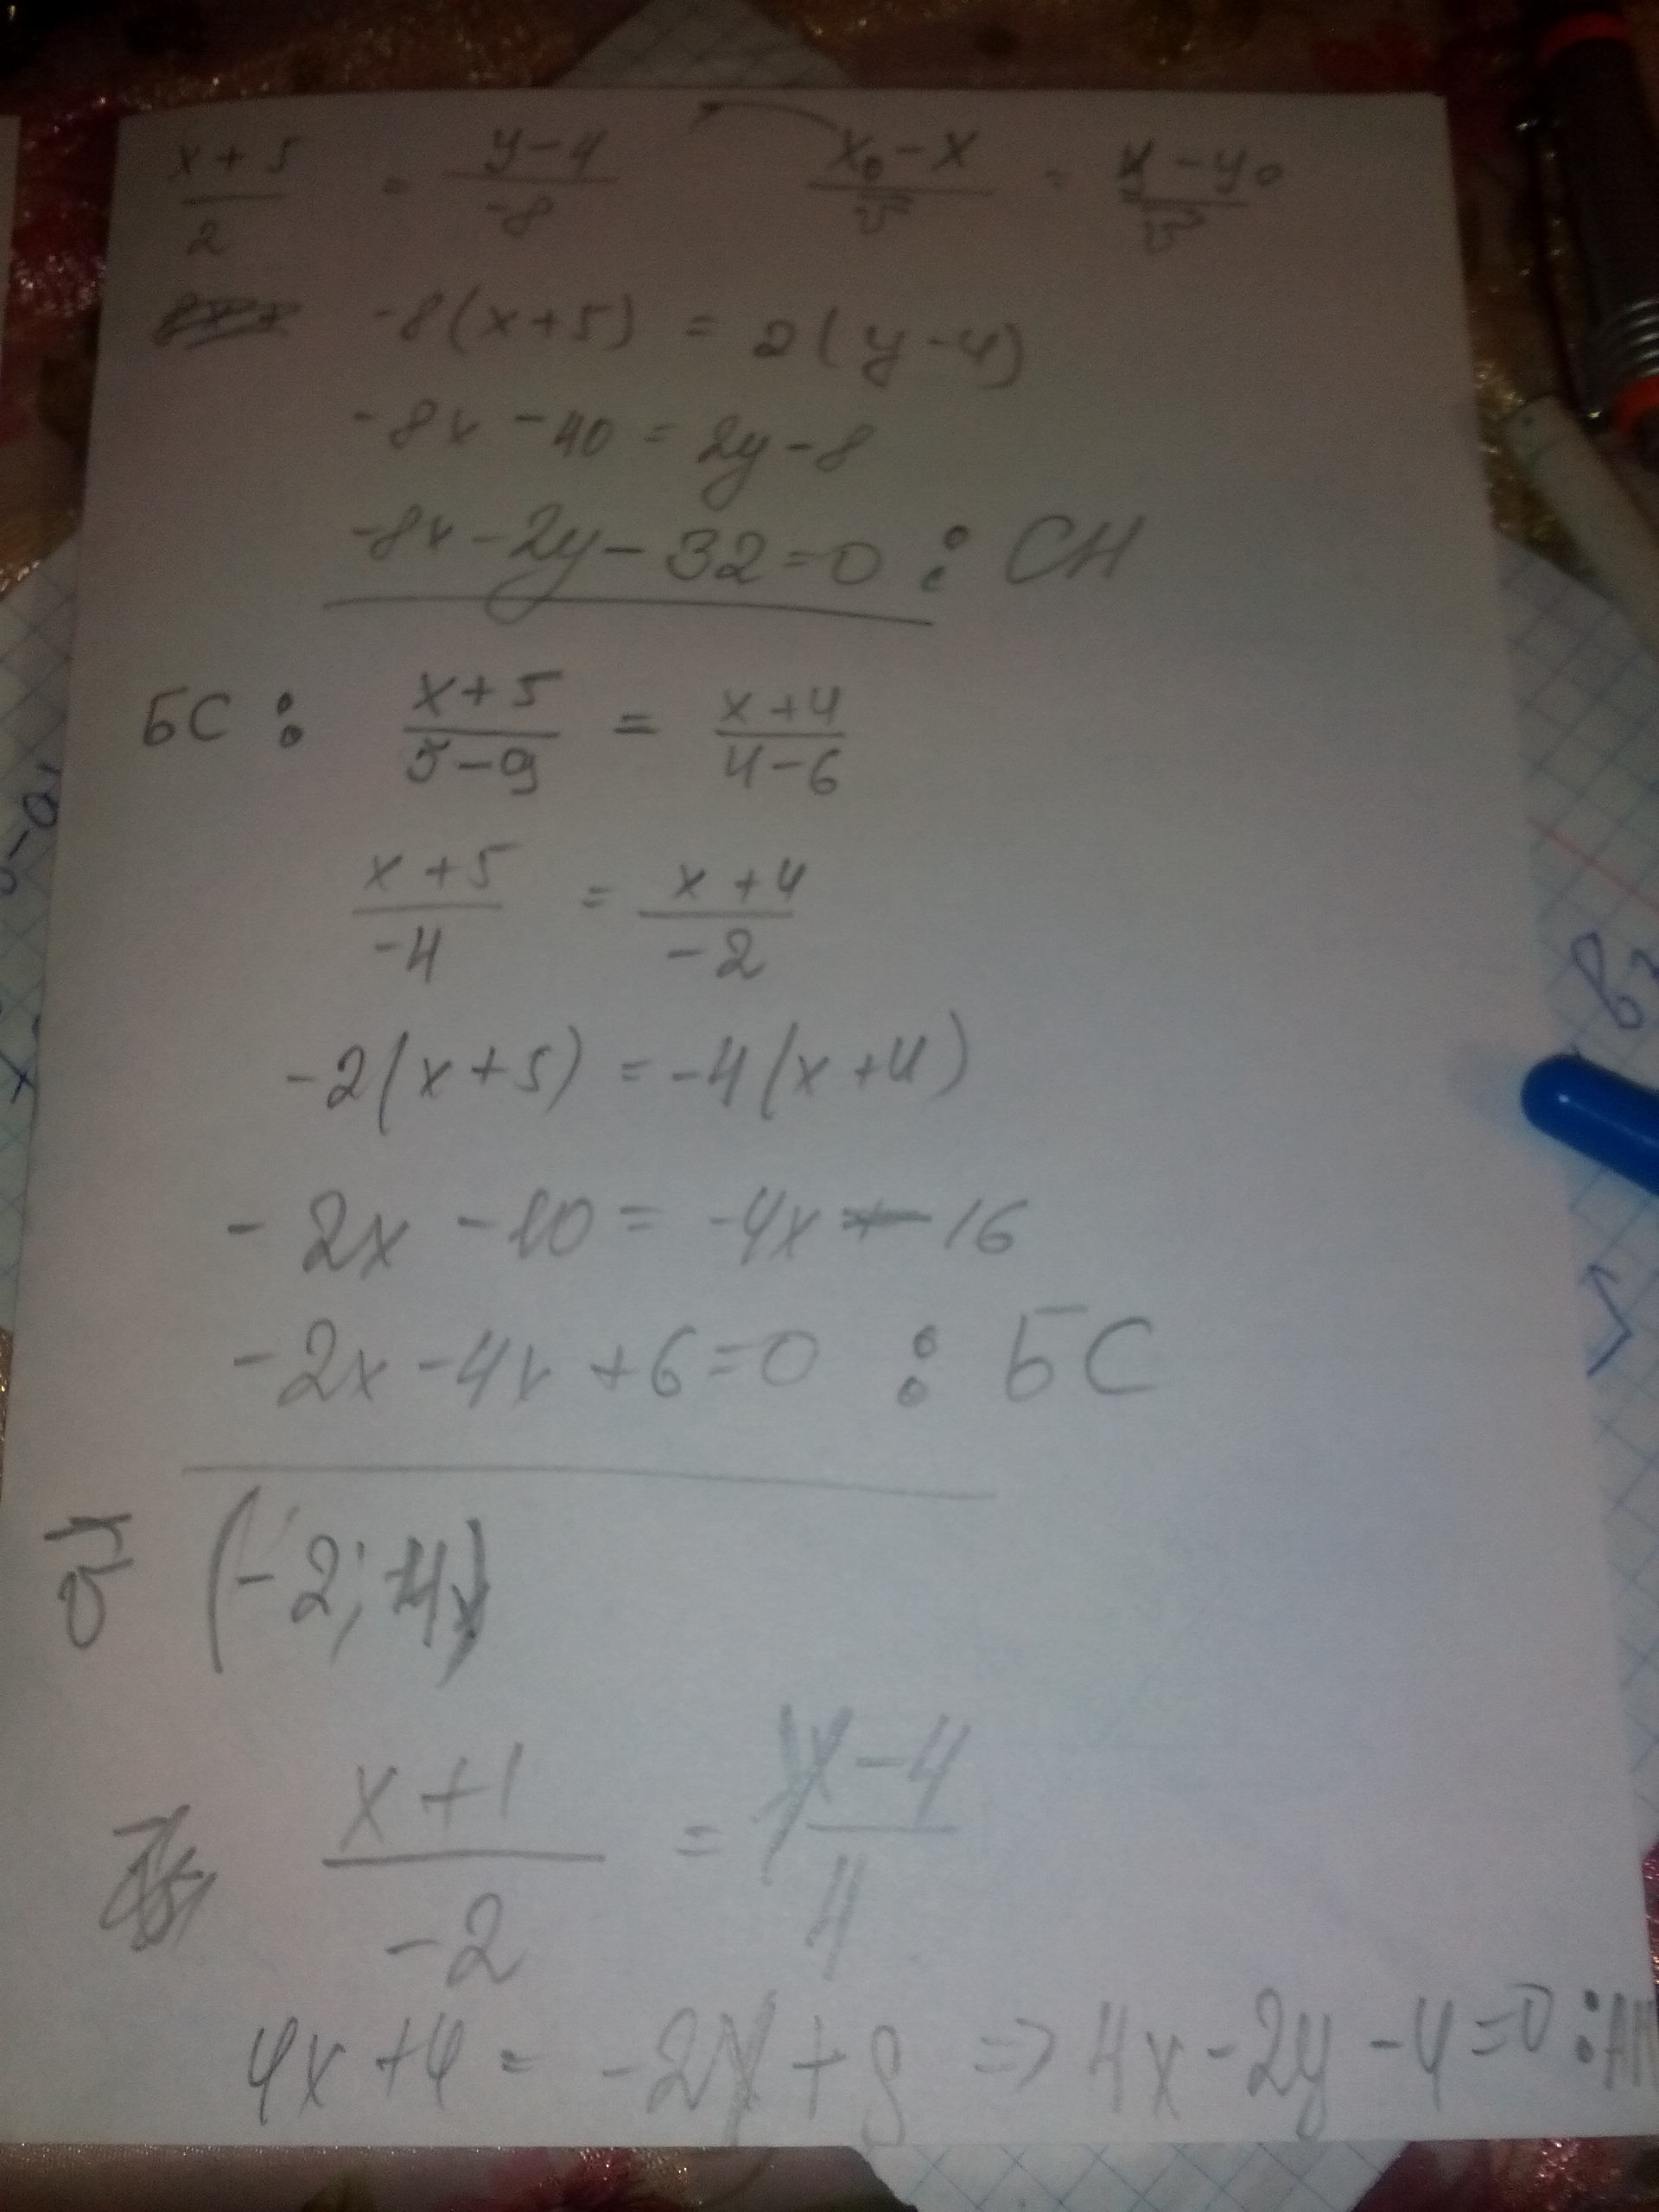 (x+5)/2 = (y-4)/-8   (x₀-x)/v⃗ = (y-y₀)/v⃗
-8(x+5) = 2(y-4)
-8x - 40 = 2y - 8
-8x - 2y - 32 = 0 : CH
БС : (x+5)/(5-9) = (x+4)/(4-6)
(x+5)/-4 = (x+4)/-2
-2(x+5) = -4(x+4)
-2x - 10 = -4x - 16
-2x - 4x + 6 = 0 : БС
(-2; 4)
(x+1)/-2 = (y-4)/4
4x + 4 = -2y + 8 => 4x - 2y - 4 = 0 :